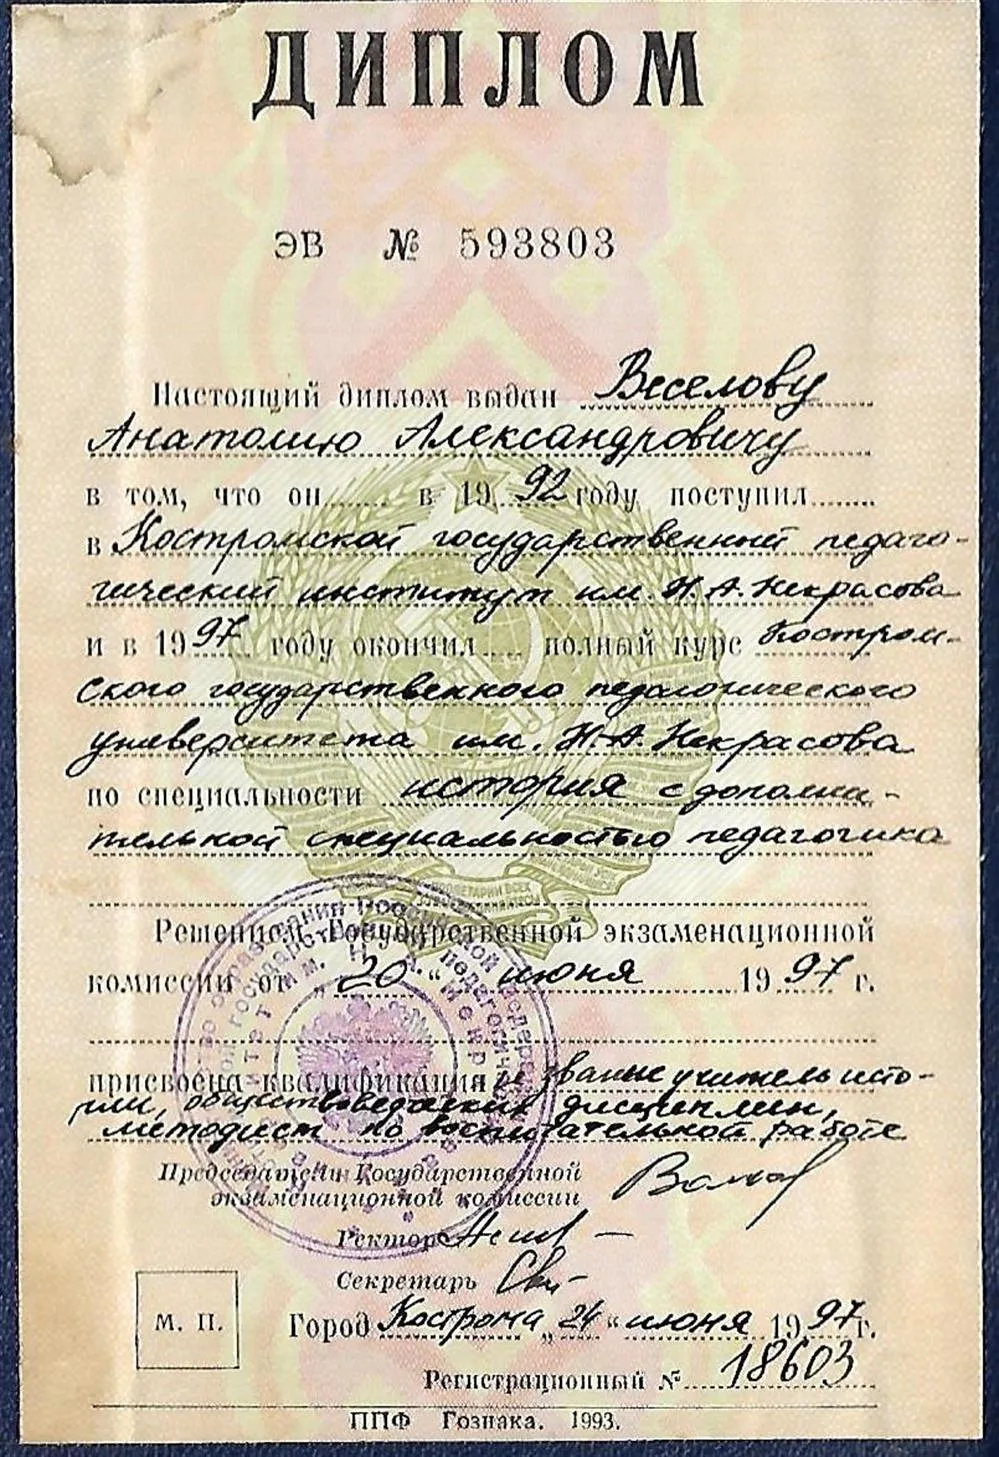 ДИПЛОМ
ЭВ № 593803
Настоящий диплом выдан Веселову
Анатолию Александровичу
в том, что он в 1992 году поступил
в Костромской государственный педаго-
гический институт им. Н. А. Некрасова
и в 1997 году окончил полный курс Костром-
ского государственного педагогического
университета им. Н. А. Некрасова
по специальности история с дополни-
тельной специальностью педагогика
Решением Государственной экзаменационной
комиссии от „20" июня 1997 г.
присвоена квалификация и звание учитель исто-
рии, обществоведческих дисциплин,
методист по воспитательной работе
Председатель Государственной
экзаменационной комиссии
Ректор
Секретарь
М. П.
Город Кострома „24" июня 1997г.
Регистрационный № 18603
ППФ Гознака. 1993.